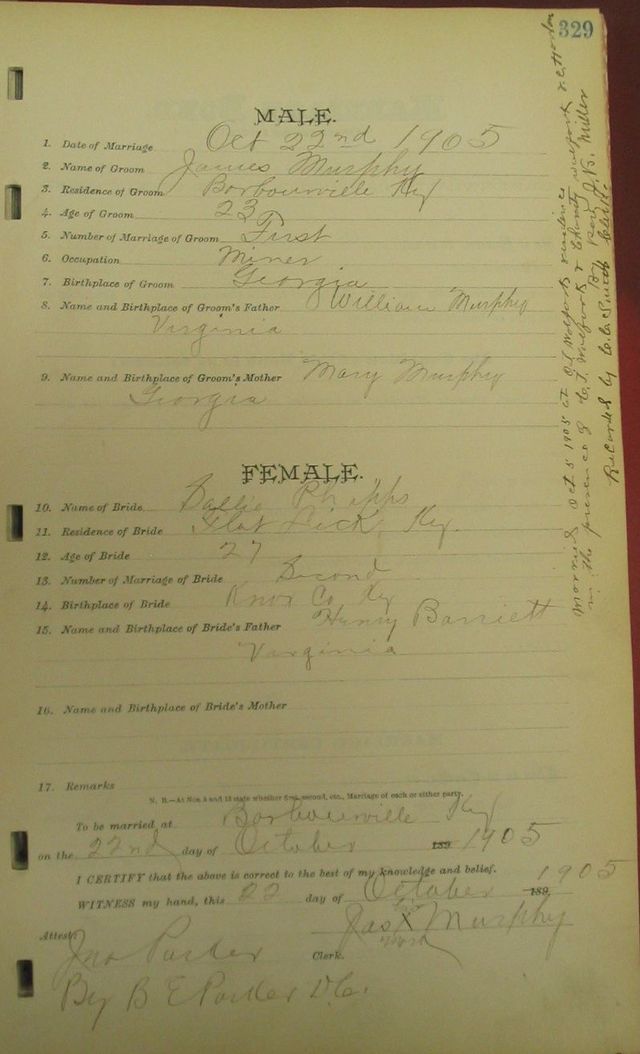 329
MALE.
1. Date of Marriage Oct 22nd 1905
2. Name of Groom James Murphy
3. Residence of Groom Barbourville Ky
4. Age of Groom 23
5. Number of Marriage of Groom First
6. Occupation Miner
7. Birthplace of Groom Georgia
8. Name and Birthplace of Groom's Father William Murphy
Virginia
9. Name and Birthplace of Groom's Mother Mary Murphy
Georgia
FEMALE.
10. Name of Bride Phipps
11. Residence of Bride Flat Lick, Ky.
12. Age of Bride 27
13. Number of Marriage of Bride Second
14. Birthplace of Bride Knox Co Ky
15. Name and Birthplace of Bride's Father Henry
Virginia
16. Name and Birthplace of Bride's Mother
17. Remarks
N. B.—At Nos. 5 and 13 state whether first, second, etc., Marriage of each or either party.
To be married at Barbourville Ky
on the 22nd day of October 189 1905
I CERTIFY that the above is correct to the best of my knowledge and belief.
WITNESS my hand, this 22 day of October 189 1905
his
Jas X Murphy
mark
Attest:
Jno Parker Clerk.
By B E Parker D.C.
Married Oct 5 1905 at residence
in the presence of
Rev J.B. Miller
Recorded by Smith Clerk.